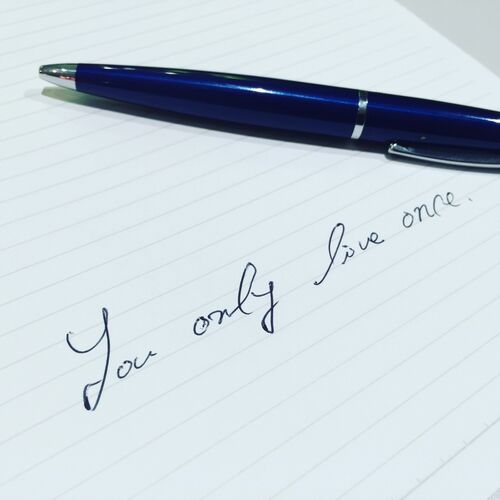 You only live once.